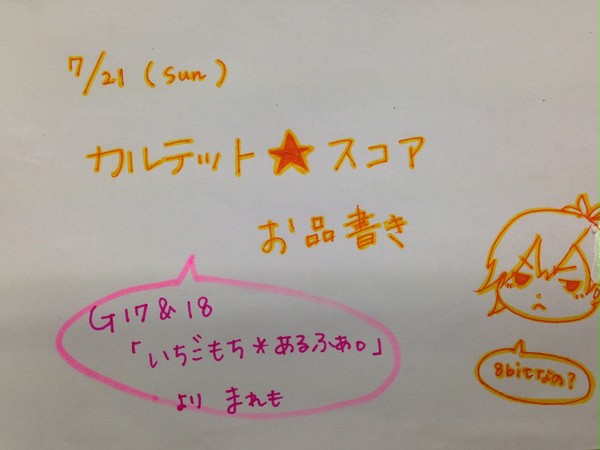 7/21 (sun)
カルテット★スコア
お品書き
G17&18
「いちごもち*あるふぁ。」
より まれも
8bitなの?